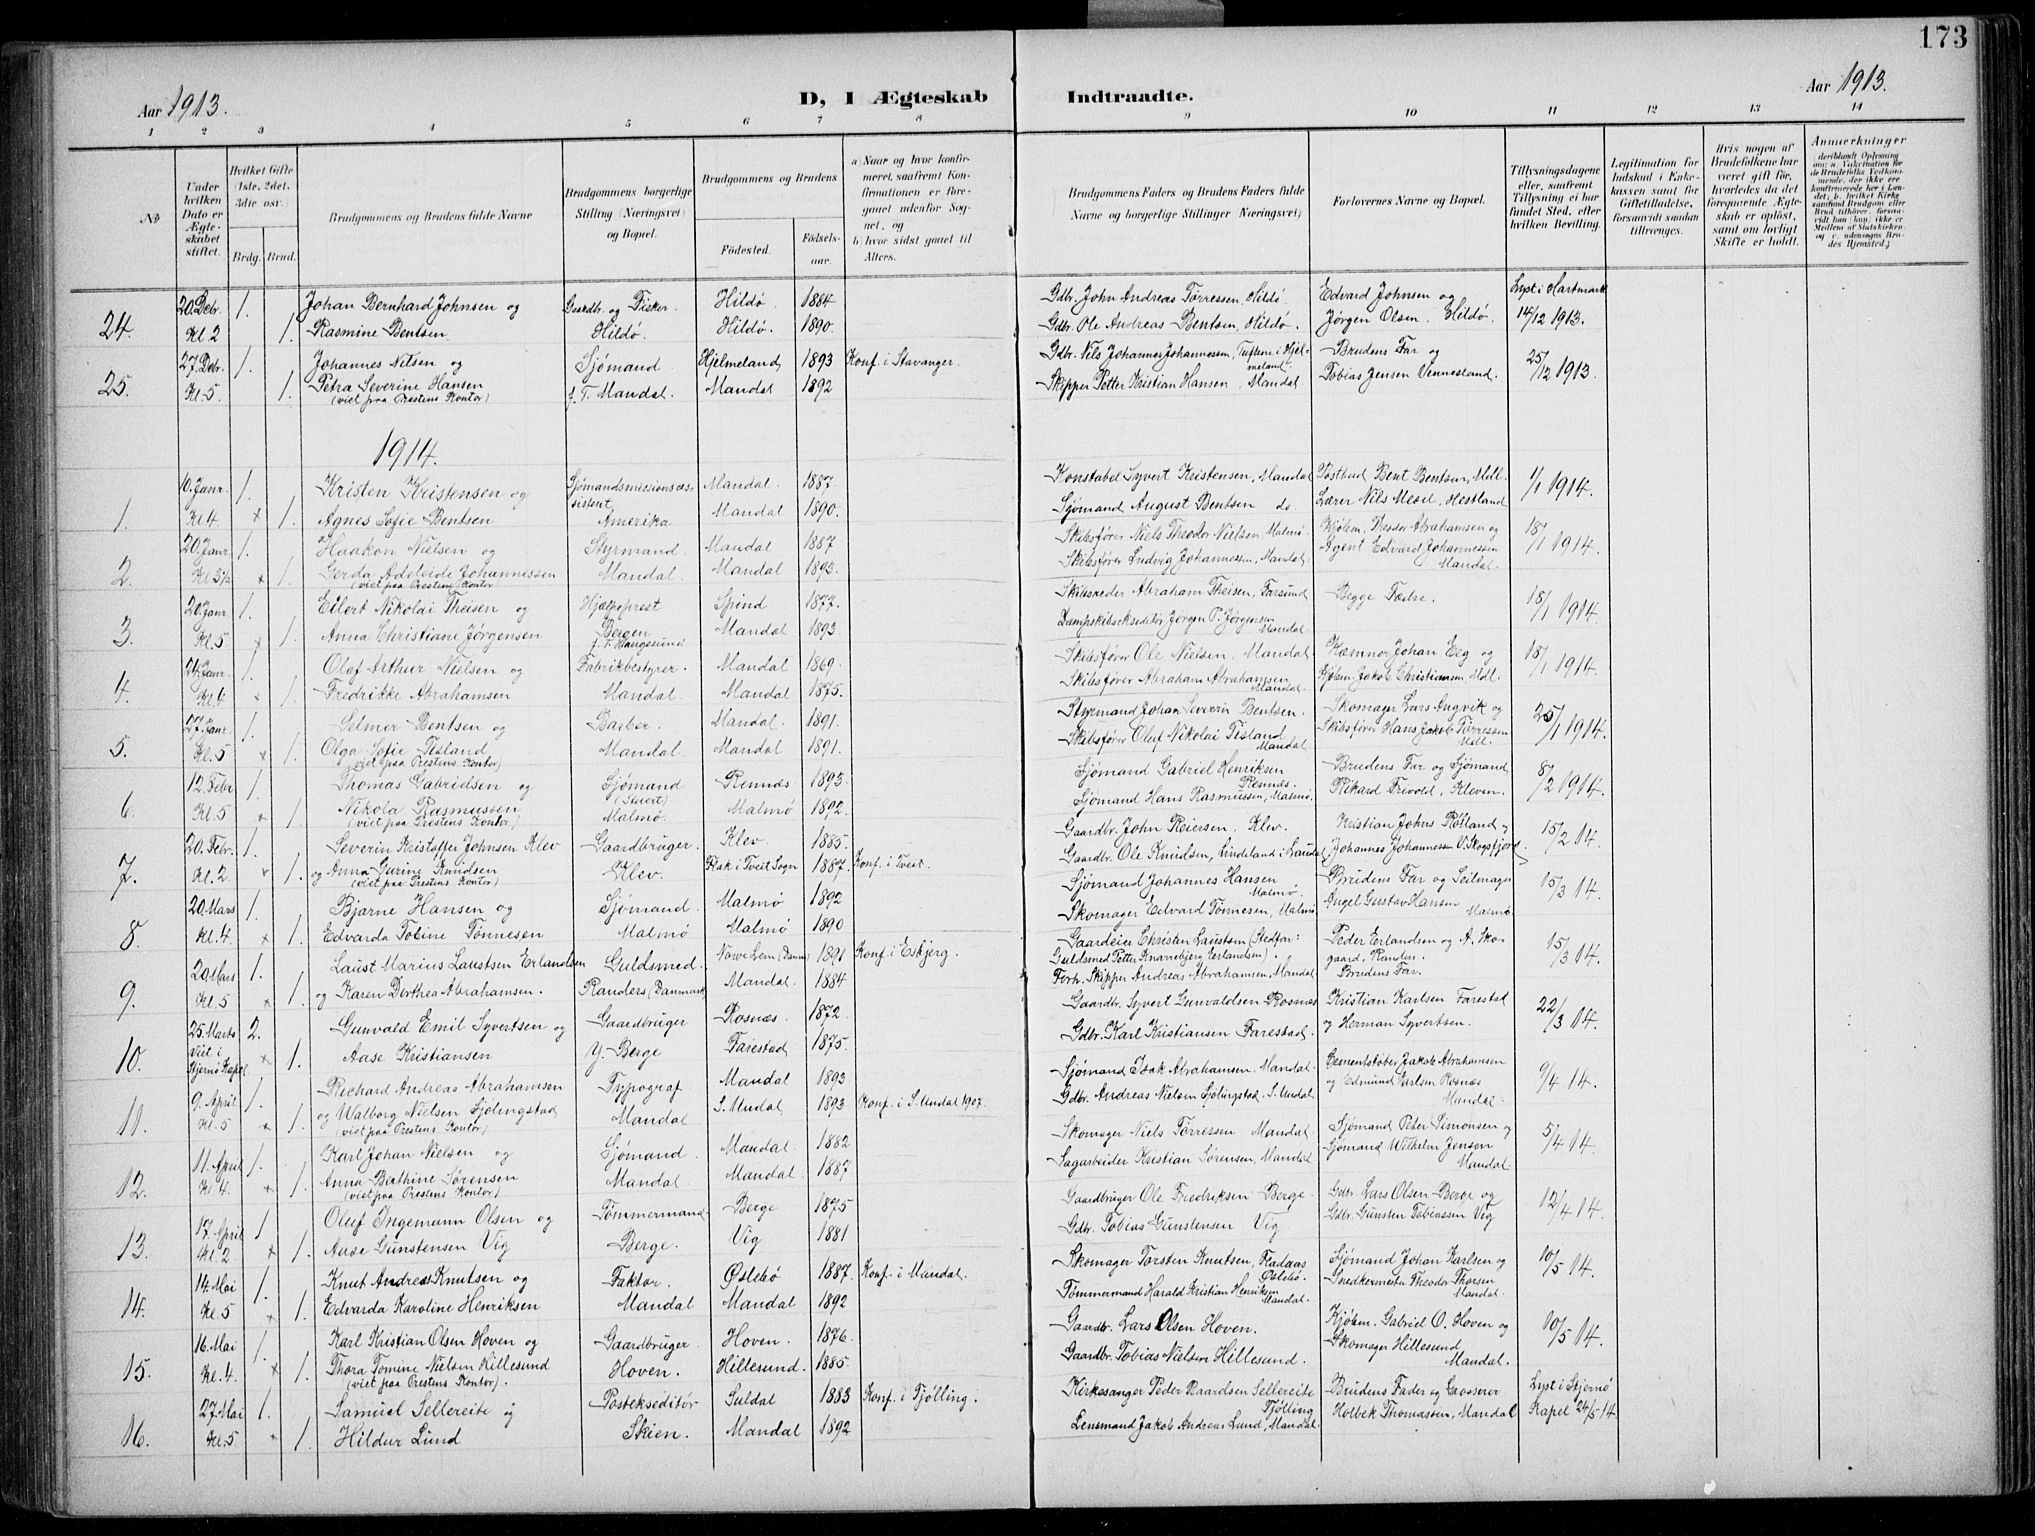 173
Aar 1913.
D, I Ægteskab Indtraadte.
Aar 1913.
1 2 3 4 5 6 7 8 9 10 11 12 13 14
No
Under hvilken Dato er Ægteskabet stiftet.
Hvilket Gifte (1ste, 2det, 3die osv.)
Brdg. Brud.
Brudgommens og Brudens fulde Navne
Brudgommens borgerlige Stilling (Næringsvei) og Bopæl.
Brudgommens og Brudens
Födested. Födselsaar.
a) Naar og hvor konfirmeret, saafremt Konfirmationen er foregaaet udenfor Sognet, og
b) hvor sidst gaaet til Alters.
Brudgommens Faders og Brudens Faders fulde Navne og borgerlige Stillinger (Næringsvei)
Forlovernes Navne og Bopæl.
Tillysningsdagene eller, saafremt Tillysning ei har fundet Sted, efter hvilken Bevilling.
Legitimation for Indskud i Enkekassen samt for Giftetilladelse, forsaavidt saadan tiltrænges.
Hvis nogen af Brudefolkene har været gift før, hvorledes da det foregaaende Ægteskab er opløst, samt om lovligt Skifte er holdt.
Anmerkninger
24. 20. Debr. 1. Johan Bernhard Johnsen og Gaardbr. og Fisker Hildö 1884 Gdbr. John Andreas Tørressen, Hildö. Edvard Johnsen og Lyst i Hartmark
Kl. 2 1. Rasmine Bentsen Hildö. Hildö. 1890. Gdbr. Ole Andreas Bentsen, Hildö. Jørgen Olsen, Hildö. 14/12 1913.
25. 27. Debr. 1. Johannes Nilsen og Sjömand Hjelmeland 1893 Konf. i Stavanger. Gdbr. Nils Johannes Johannessen, Tuftene i Hjelmeland. Brudens Far og 25/12 1913.
Kl. 5. 1. Petra Severine Hansen f. T. Mandal. Mandal 1892 Skipper Petter Kristian Hansen, Mandal Tobias Jensen Vennesland.
(viet paa Prestens Kontor)
1914.
1. 10. Janr. 1. Kristen Kristensen og Sjømandsmissionsassistent, Mandal. 1887. Konstabel Syvert Kristensen, Mandal Postbud Bent Bentsen, Mdl. 1/1 1914.
Kl. 4 × 1. Agnes Sofie Bentsen Amerika Mandal 1890. Sjømand August Bentsen do Lærer Nils Mesel, Hestland
2. 20. Janr. 1. Haakon Nielsen og Styrmand. Mandal 1887 Skibsfører Niels Theodor Nielsen, Malmö. Kjøbm. Theodor Abrahamsen og 18/1 1914.
Kl. 3½ × 1. Gerda Adeleide Johannessen Mandal. Mandal 1893. Skibsfører Ludvig Johannessen, Mandal. Agent Edvard Johannessen Mandal.
(viet paa Prestens Kontor)
3. 20. Janr. 1. Eilert Nikolai Theisen og Hjælpeprest Spind 1877. Skibsreder Abraham Theisen, Farsund Begge Fædre. 18/1 1914.
Kl. 5. × 1. Anna Christiane Jørgensen Bergen f. T. Haugesund Mandal 1893. Dampskibsekspeditör Jørgen P. Jørgensen Mandal.
4. 24. Janr. 1. Olaf Arthur Nielsen og Fabrikbestyrer. Mandal 1869. Skibsfører Ole Nielsen, Mandal Kæmner Johan Eeg og 18/1 1914.
Kl. 4 × 1. Fredrikke Abrahamsen Mandal. Mandal 1875. Skibsfører Abraham Abrahamsen Mandal. Kjøbm. Jakob Christiansen, Mdl.
5. 27. Janr. 1. Selmer Bentsen og Barber. Mandal. 1891. Styrmand Johan Severin Bentsen. Skomager Lars Angvik og 25/1 1914.
Kl. 5 × 1. Olga Sofie Fisland Mandal. Mandal 1891. Skibsfører Oluf Nikolai Fisland Mandal Skibsfører Hans Jakob Tørressen Mdl.
(viet paa Prestens Kontor)
6. 12. Febr. 1. Thomas Gabrielsen og Sjömand (Stuert) Rennæs 1893. Sjömand Gabriel Henriksen Rennæs. Brudens Far og Sjömand 8/2 1914.
Kl. 5 × 1. Nikola Rasmussen Malmö. Malmö 1892. Sjömand Hans Rasmussen, Malmö. Rikard Frivold, Kleven.
(viet paa Prestens Kontor)
7. 20. Febr. 1. Severin Kristoffer Johnsen Klev Gaardbruger. Klev. 1885. Gaardbr. John Reiersen, Klev. Kristian Johns Røiland og 15/2 14.
Kl. 2 × 1. og Anna Gurine Knudsen Klev. Flak i Tveit Sogn 1887. Konf. i Tveit. Gaardbr. Ole Knudsen, Lindeland i Laudal Johannes Johannessen V. Skogsfjord
(viet paa Prestens Kontor)
8. 20. Mars 1. Bjarne Hansen og Sjömand. Malmö 1892 Sjömand Johannes Hansen Malmö. Brudens Far og Seilmager 15/3 14.
Kl. 4. × 1. Edvarda Tobine Tønnesen Malmö Malmö 1890 Skomager Edvard Tønnesen, Malmö Angel Gustav Hansen Malmö.
9. 20. Mars 1. Laust Marius Laustsen Erlandsen Guldsmed. Nørre Lem (Danm.) 1891 Konf. i Esbjerg Gaardeier Christen Laustsen (Stedfar: Guldsmed Petter Knarrebjerg Erlandsen). Peder Erlandsen og A. Skogaard, Randers. 15/3 14.
Kl. 5 × 1. og Karen Dorthea Abrahamsen. Randers (Danmark) Mandal. 1884 Forh. Skipper Andreas Abrahamsen, Mandal Brudens Far.
10. 25. Marts 2. Gunvald Emil Syvertsen og Gaardbruger Rosnæs 1872 Gaardbr. Syvert Gunvaldsen Rosnæs Kristian Karlsen Farestad 22/3 14.
Viet i Skjernö Kapel × 1. Aase Kristiansen Y. Berge Farestad 1875. Gdbr. Karl Kristiansen Farestad. og Herman Syvertsen.
11. 9. April 1. Richard Andreas Abrahamsen Typograf Mandal 1893 Sjömand Isak Abrahamsen. Mandal Cementstøber Jakob Abrahamsen 9/4 14.
Kl. 5 × 1. og Walborg Nielsen Sjölingstad Mandal S. Undal 1893 Konf. i S. Undal 1907. Gdbr. Andreas Nielsen Sjölingstad, S. Undal og Edmund Karlsen Rosnæs Mandal.
(viet paa Prestens Kontor)
12. 11. April 1. Karl Johan Nielsen og Sjömand. Mandal. 1882 Skomager Niels Tørressen Mandal Sjömand Peter Simonsen og 5/4 14.
Kl. 4. × 1. Anna Berthine Sørensen Mandal. Mandal. 1887 Sagarbeider Kristian Sørensen, Mandal Sjömand Wilhelm Jensen Mandal.
(viet paa Prestens Kontor)
13. 17. April 1 Oluf Ingemann Olsen og Tömmermand. Berge 1875 Gaardbruger Ole Fredriksen Berge Gdbr. Lars Olsen Berge og 12/4 14.
Kl. 2. × 1. Aase Gunstensen Vig Berge. Vig 1881 Gdbr. Tobias Gunstensen Vig Gdbr. Gunsten Tobiassen Vig
14. 14. Mai 1. Knut Andreas Knutsen og Faktor. Øslebö 1887. Konf. i Mandal. Skomager Torsten Knutsen, Øslebö. Sjömand Johan Karlsen og 10/5 14.
Kl. 5 × 1. Edvarda Karoline Henriksen Mandal Mandal 1892 Tömmermand Harald Kristian Henriksen Mandal. Snedkermester Theodor Thorsen Mandal.
15. 16. Mai 1. Karl Kristian Olsen Hoven og Gaardbruger Hoven. 1876. Gaardbr. Lars Olsen Hoven. Kjøbm. Gabriel O. Hoven og 10/5 14.
Kl. 4. × 1. Thora Tomine Nielsen Hillesund Hoven. Hillesund. 1885. Gaardbr. Tobias Nielsen Hillesund. Skomager Hillesund Mandal.
(viet paa Prestens Kontor).
16. 27. Mai 1. Samuel Sellereite og Postekspeditör Suldal 1883 Konf. i Tjølling. Kirkesanger Peder Baardsen Sellereite Tjølling Brudens Fader og Grosserer Lyst i Skjernö
Kl. 5. × 1. Hildur Lund Skien. Mandal 1892 Lensmand Jakob Andreas Lund, Mandal. Holbek Thomassen, Mandal Kapel 24/5 14.